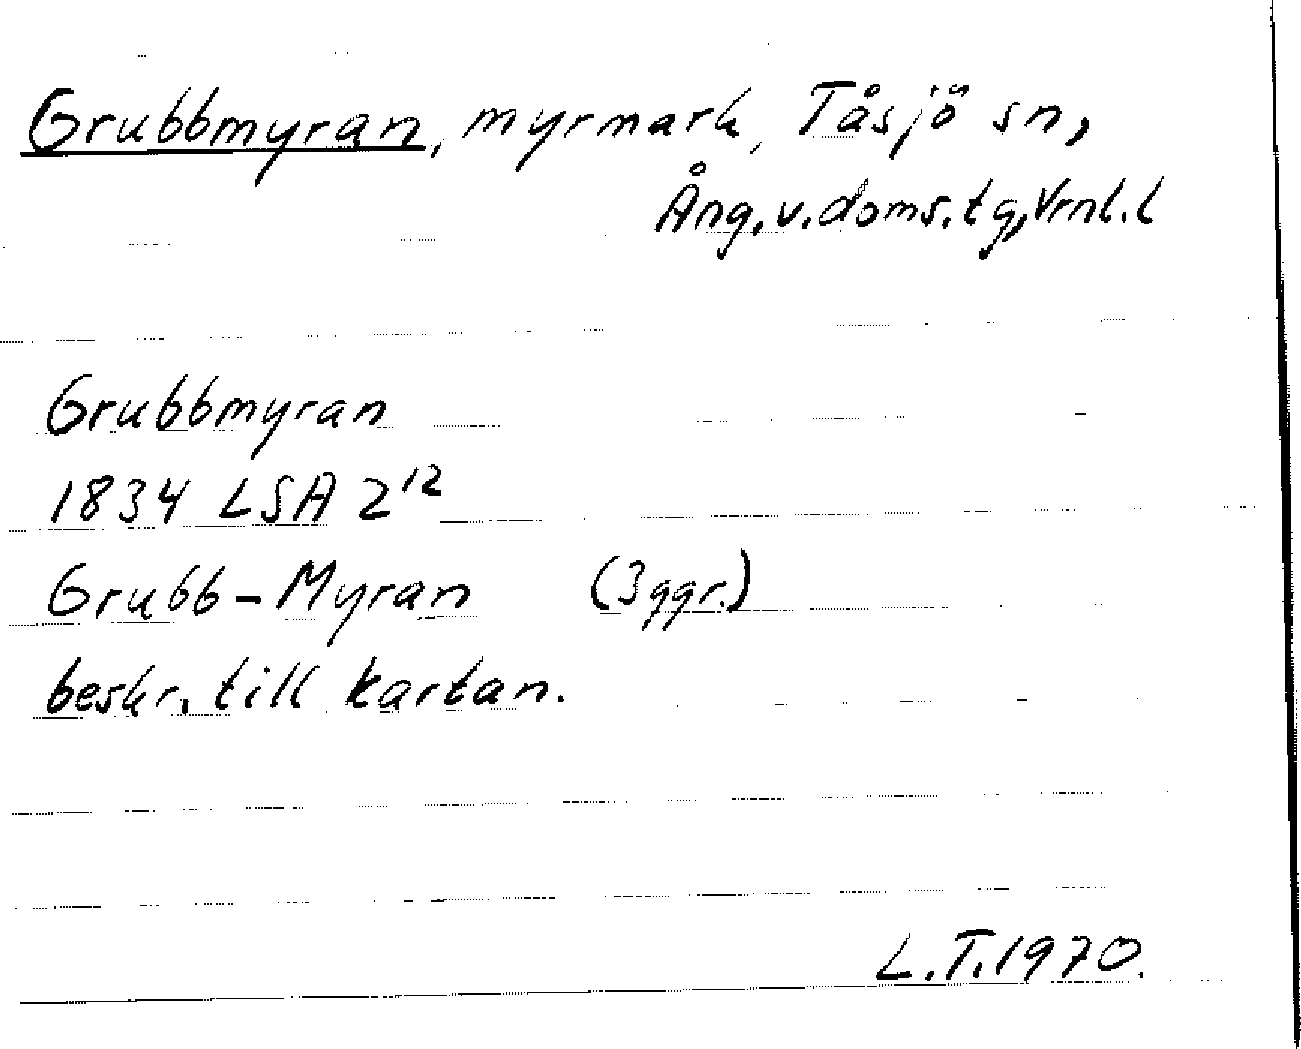 Grubbmyran, myrmark, Tåsjö sn,
Ång. v. doms. tg, Vrnl. l
Grubbmyran
1834 LSA Z¹²
Grubb-Myran (3 ggr.)
beskr. till kartan.
L.T. 1970.